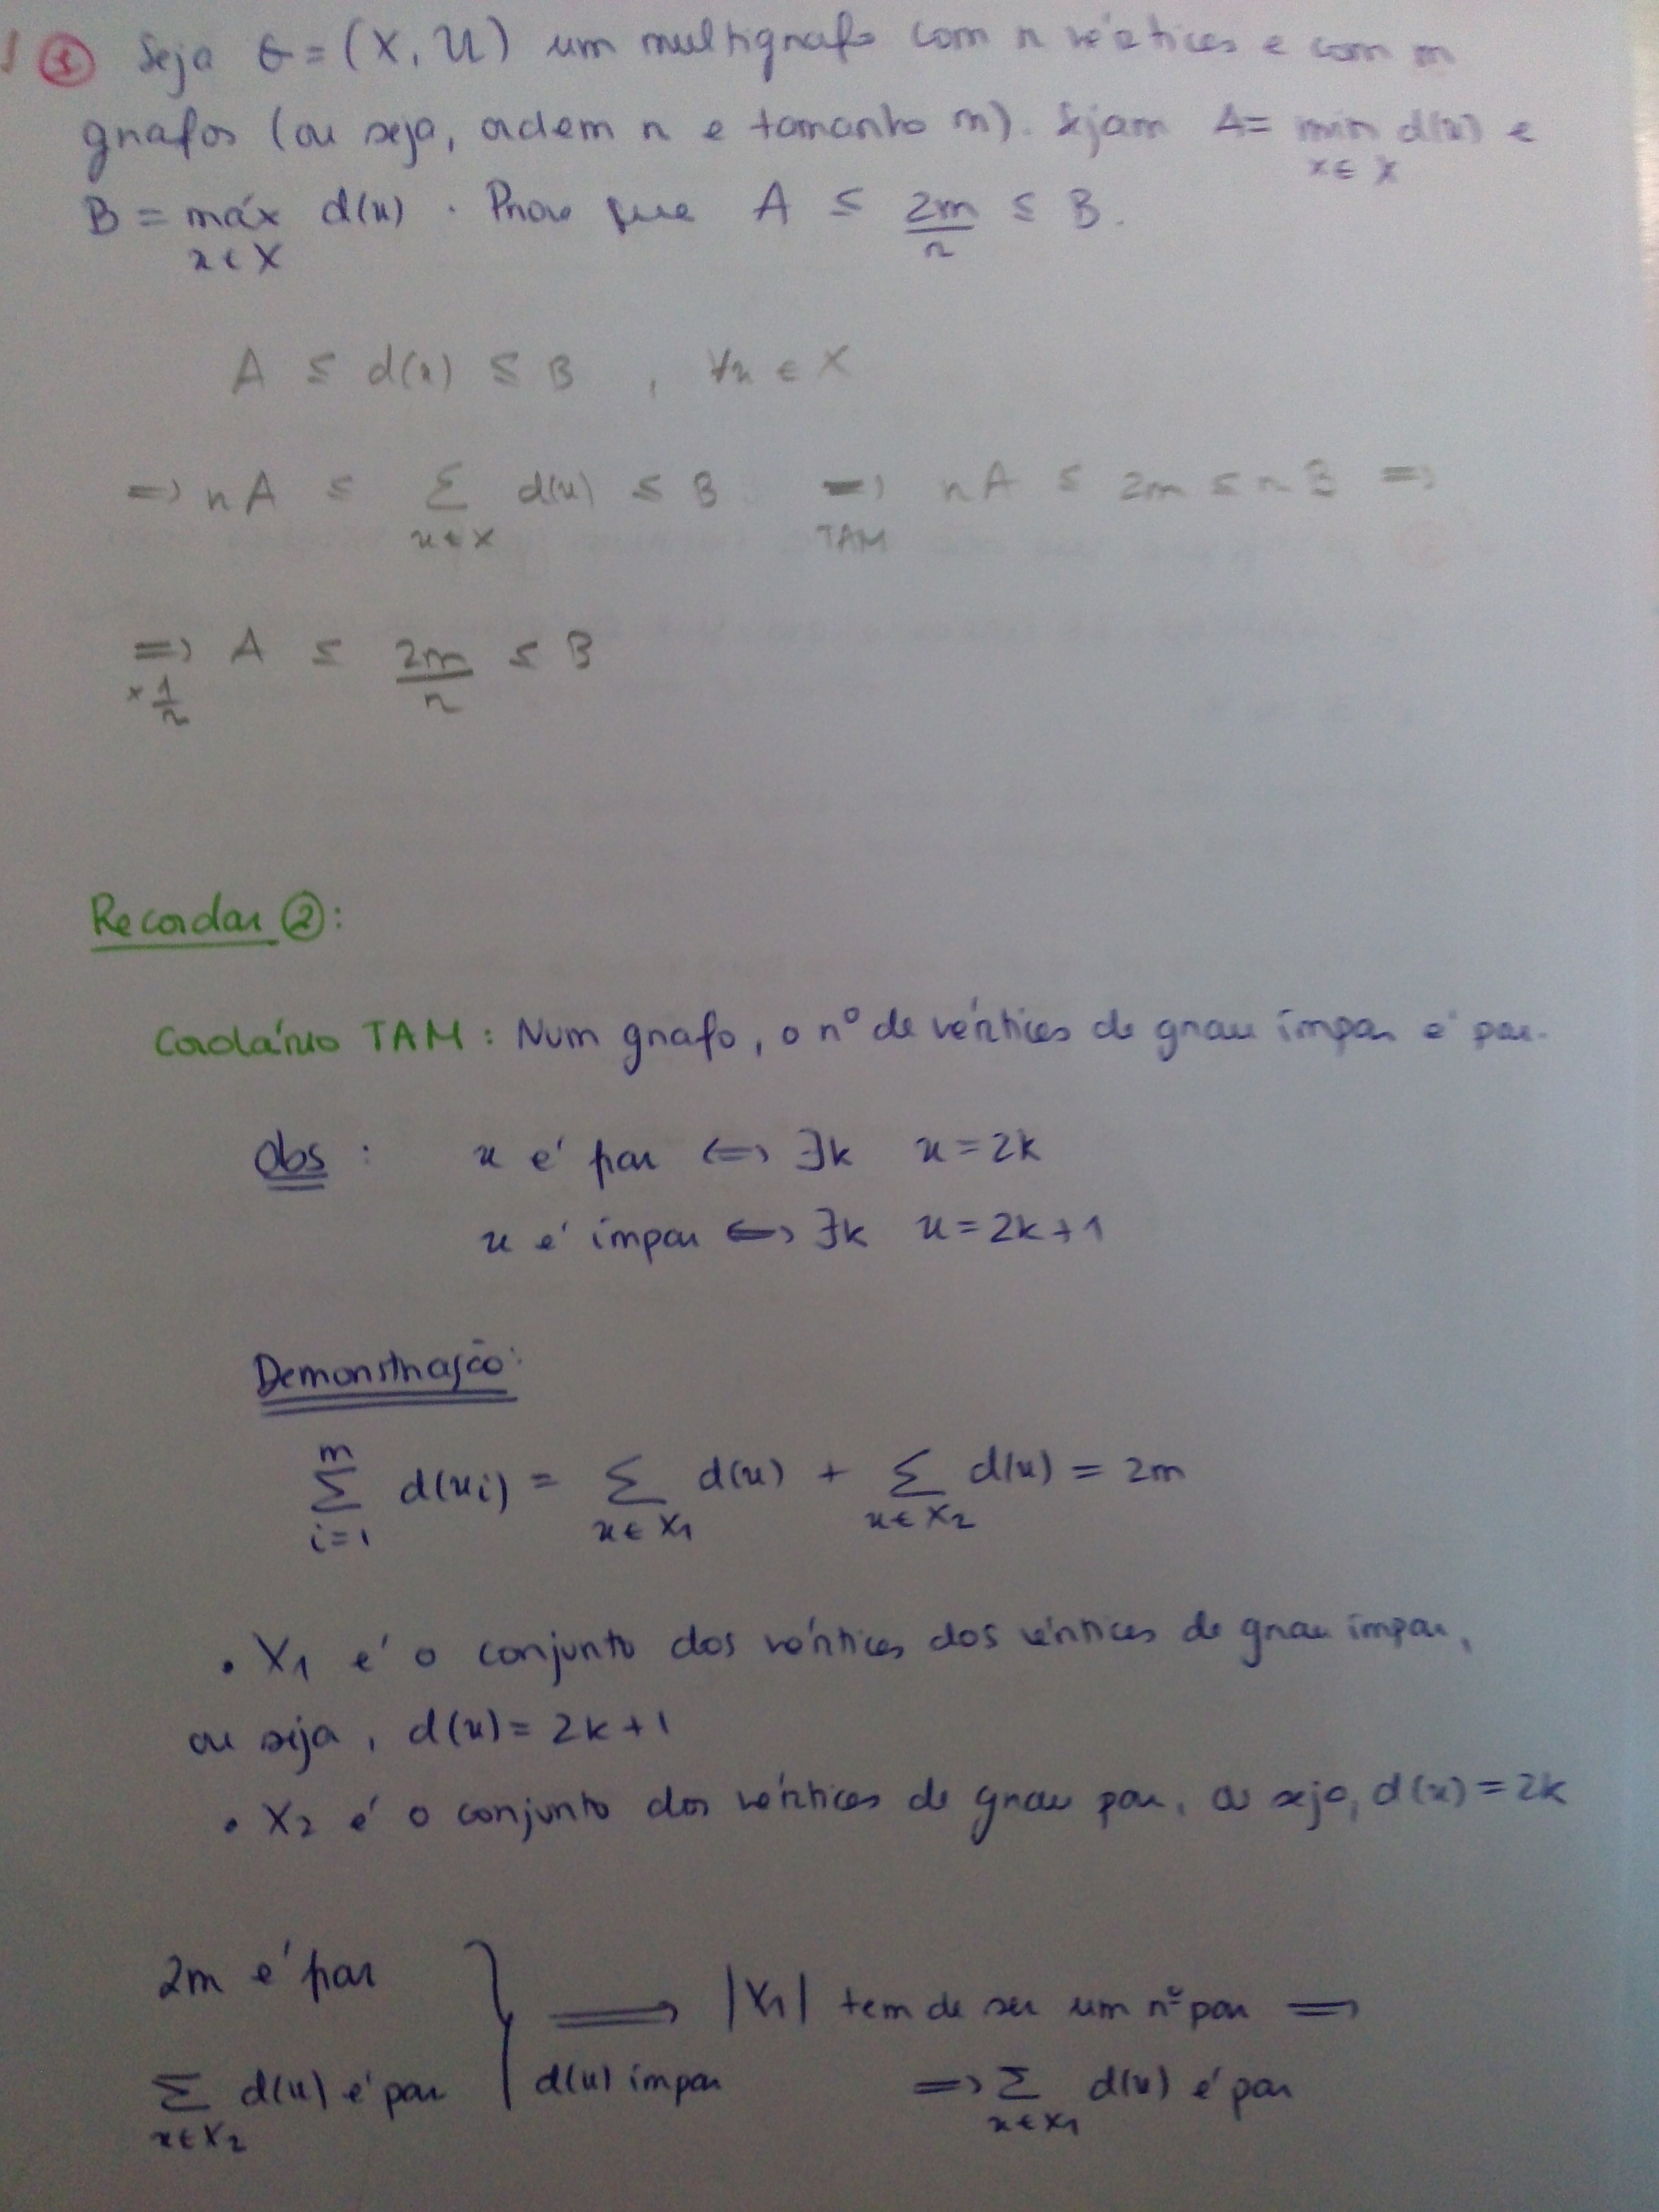 ⑤ Seja G = (X, U) um multigrafo com n vértices e com m
grafos (ou seja, ordem n e tamanho m). Sejam A = min d(x) e
x ∈ X
B = máx d(x) . Prove que A ≤ 2m/n ≤ B.
x ∈ X
A ≤ d(x) ≤ B , ∀x ∈ X
=> nA ≤ Σ d(x) ≤ B => nA ≤ 2m ≤ nB =>
x ∈ X TAM
=> A ≤ 2m/n ≤ B
× 1/n
Recordar ②:
Corolário TAM : Num grafo, o nº de vértices de grau ímpar é par.
Obs : x é par <=> ∃k x = 2k
x é ímpar <=> ∃k x = 2k+1
Demonstração:
m
Σ d(xi) = Σ d(x) + Σ d(x) = 2m
i=1 x ∈ X1 x ∈ X2
• X1 é o conjunto dos vértices dos vértices de grau ímpar,
ou seja, d(x) = 2k+1
• X2 é o conjunto dos vértices de grau par, ou seja, d(x) = 2k
2m é par } => |X1| tem de ser um nº par =>
Σ d(x) é par d(x) ímpar => Σ d(x) é par
x ∈ X2 x ∈ X1